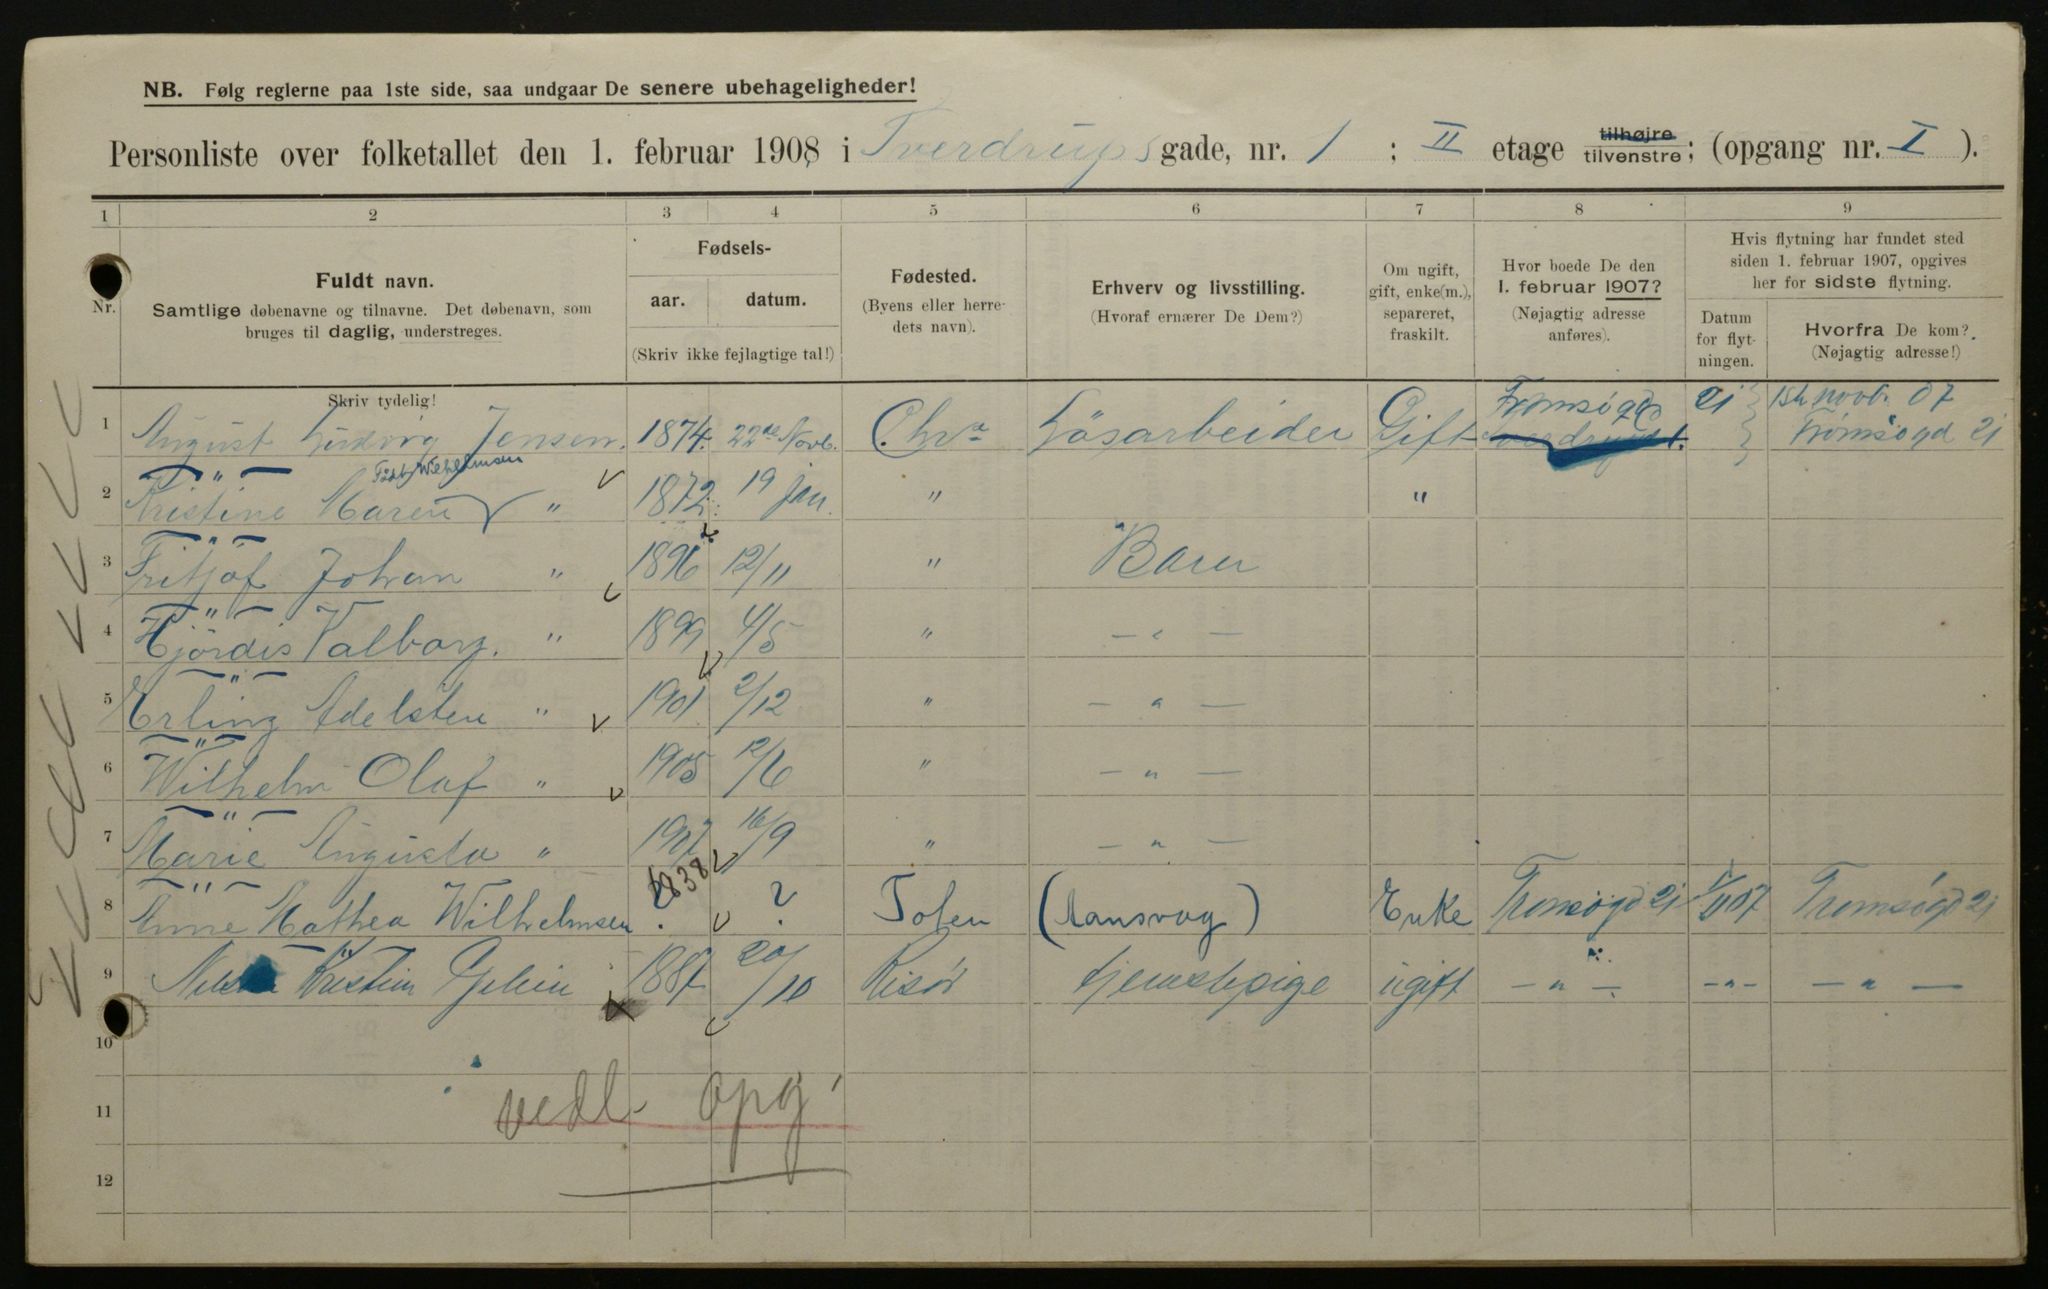 NB. Følg reglerne paa 1ste side, saa undgaar De senere ubehageligheder!
Personliste over folketallet den 1. februar 1908 i Sverdrups gade, nr. 1 ; II etage tilhøjre tilvenstre; (opgang nr. I ).
1 2 3 4 5 6 7 8 9
Nr.
Fuldt navn.
Samtlige døbenavne og tilnavne. Det døbenavn, som
bruges til daglig, understreges.
Skriv tydelig!
Fødsels-
aar. datum.
(Skriv ikke fejlagtige tal!)
Fødested.
(Byens eller herre-
dets navn).
Erhverv og livsstilling.
(Hvoraf ernærer De Dem?)
Om ugift,
gift, enke(m.),
separeret,
fraskilt.
Hvor boede De den
1. februar 1907?
(Nøjagtig adresse
anføres).
Hvis flytning har fundet sted
siden 1. februar 1907, opgives
her for sidste flytning.
Datum
for flyt-
ningen.
Hvorfra De kom?
(Nøjagtig adresse!)
1 August Ludvig Jensen. 1874. 22de Novb. Chra Løsarbeider Gift Tromsøgd 21 15de novb. 07 Tromsøgd 21
Født Wilhelmsen
2 Kristine Maren " 1872. 19 jan. " "
3 Fritjof Johan " 1896 12/11 " Barn
4 Hjördis Valborg. " 1899 4/5 " — " —
5 Erling Adelsten " 1901 2/12 " — " —
6 Wilhelm Olaf " 1905 12/6 " — " —
7 Marie Augusta " 1907 16/9 " — " —
8 Anne Mathea Wilhelmsen 1838 ? Toten Enke Tromsøgd 21 07 Tromsøgd 21
9 Kristin 1887 20/10 Risør tjenestepige ugift — " — — " — — " —
10
11
12
vedl. opg